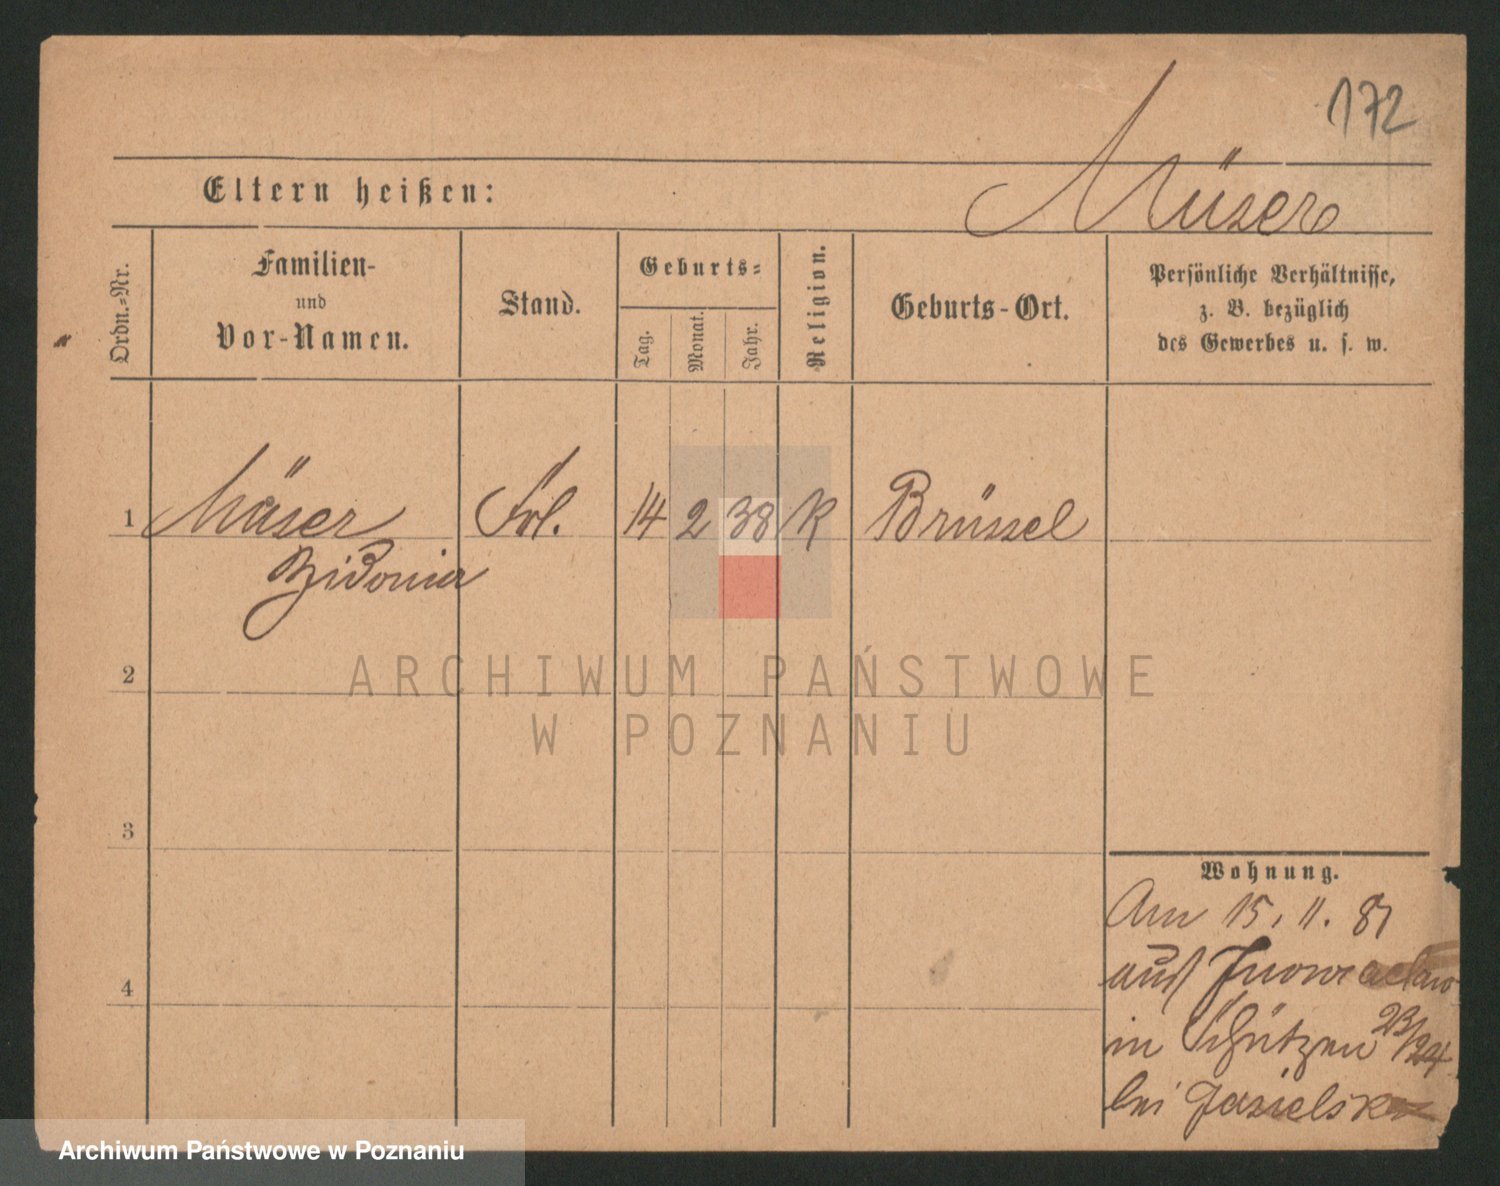 172
Müser
Eltern heißen:
Ordn.-Nr.
Familien-
und
Vor-Namen.
Stand.
Geburts-
Tag.
Monat.
Jahr.
Religion.
Geburts-Ort.
Persönliche Verhältnisse,
z. B. bezüglich
des Gewerbes u. s. w.
1 Mäser Frl. 14 2 38 K Brüssel
Zidonia
2
3
4
Wohnung.
Am 15. 11. 81
aus Inowraclaw
in Schützen 23/24
bei Jasielska
ARCHIWUM PAŃSTWOWE
W POZNANIU
Archiwum Państwowe w Poznaniu